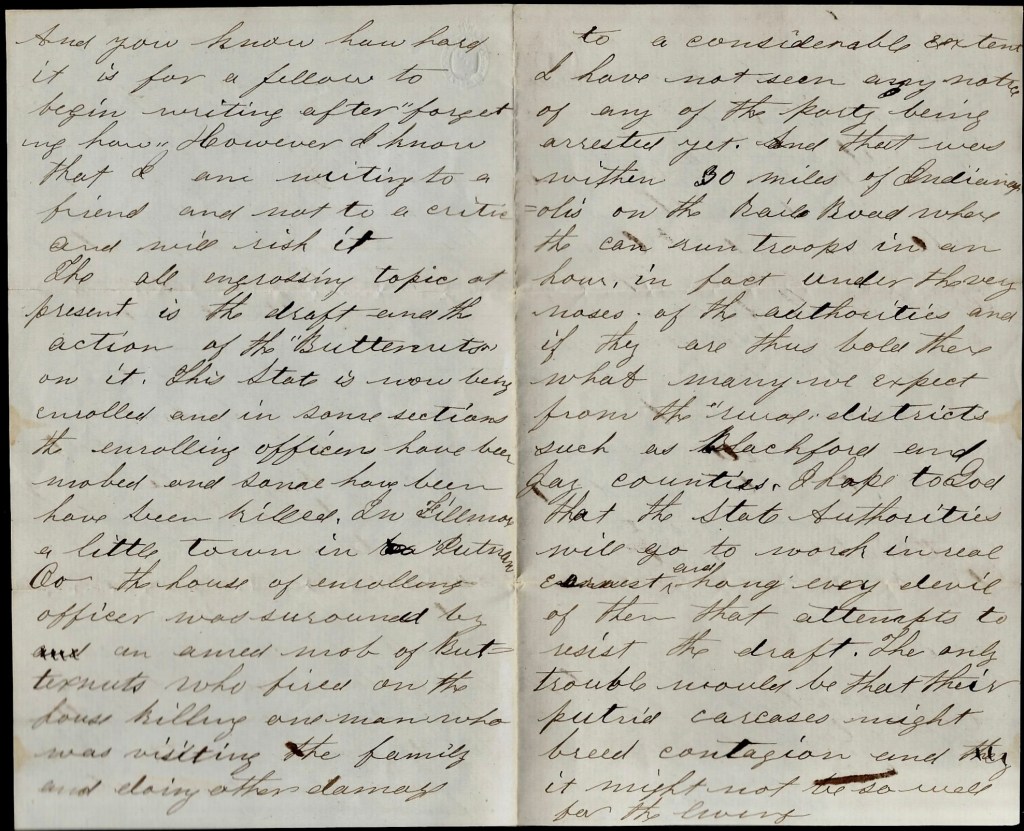 And you know how hard
it is for a fellow to
begin writing after "forget
ing how" However I know
that I am writing to a
friend and not to a critic
and will risk it
The all engrossing topic at
present is the draft and the
action of the "Butternuts"
on it. This State is now being
enrolled and in some sections
the enrolling officers have been
mobed and some have been
have been killed. In Fillmore
a little town in Putnam
Co the house of enrolling
officer was suround by
and an armed mob of But=
ternuts who fired on the
house killing one man who
was visiting the family
and doing other damage
to a considerable extent
I have not seen any notice
of any of the party being
arrested yet. And that was
within 30 miles of Indianap
=olis on the Rail Road where
the can run troops in an
hour, in fact under the very
noses of the authorities and
if they are thus bold there
what many we expect
from the "rural" districts
such as Blachford and
Jay counties. I hope to God
that the State Authorities
will go to work in real
earnest, and hang evey devil
of them that attempts to
resist the draft. The only
trouble would be that their
putrid carcases might
breed contagion and they
it might not be so well
for the living